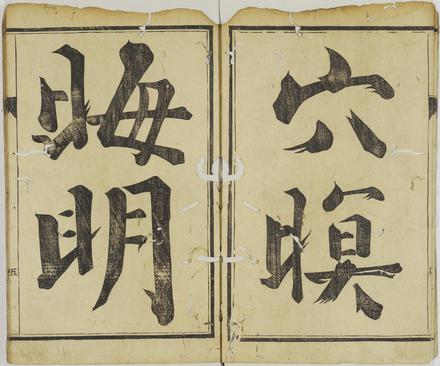 穴暝
晦明
五